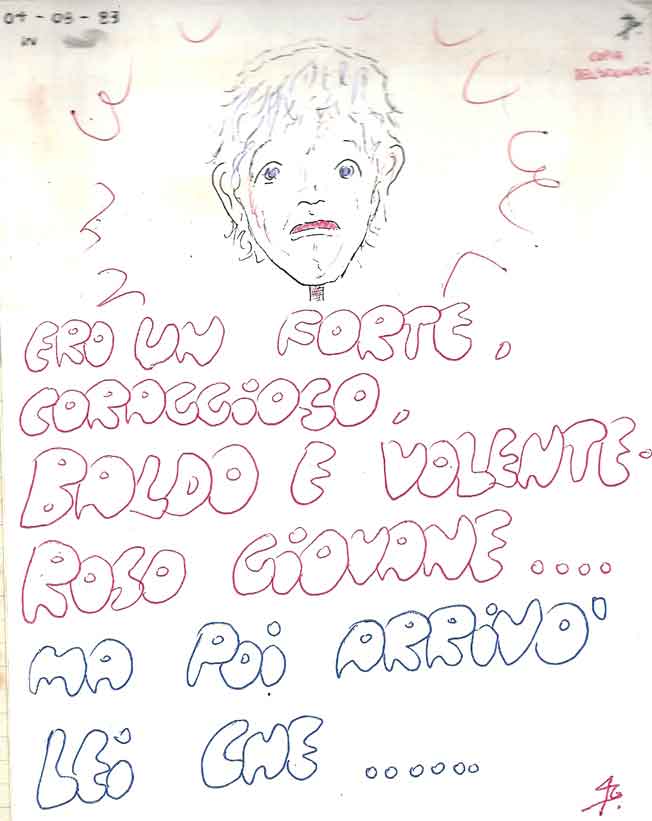 04-03-83
IN
COPIA
ERO UN FORTE,
CORAGGIOSO,
BALDO E VOLENTE-
ROSO GIOVANE ....
MA POI ARRIVÒ
LEI CHE ......